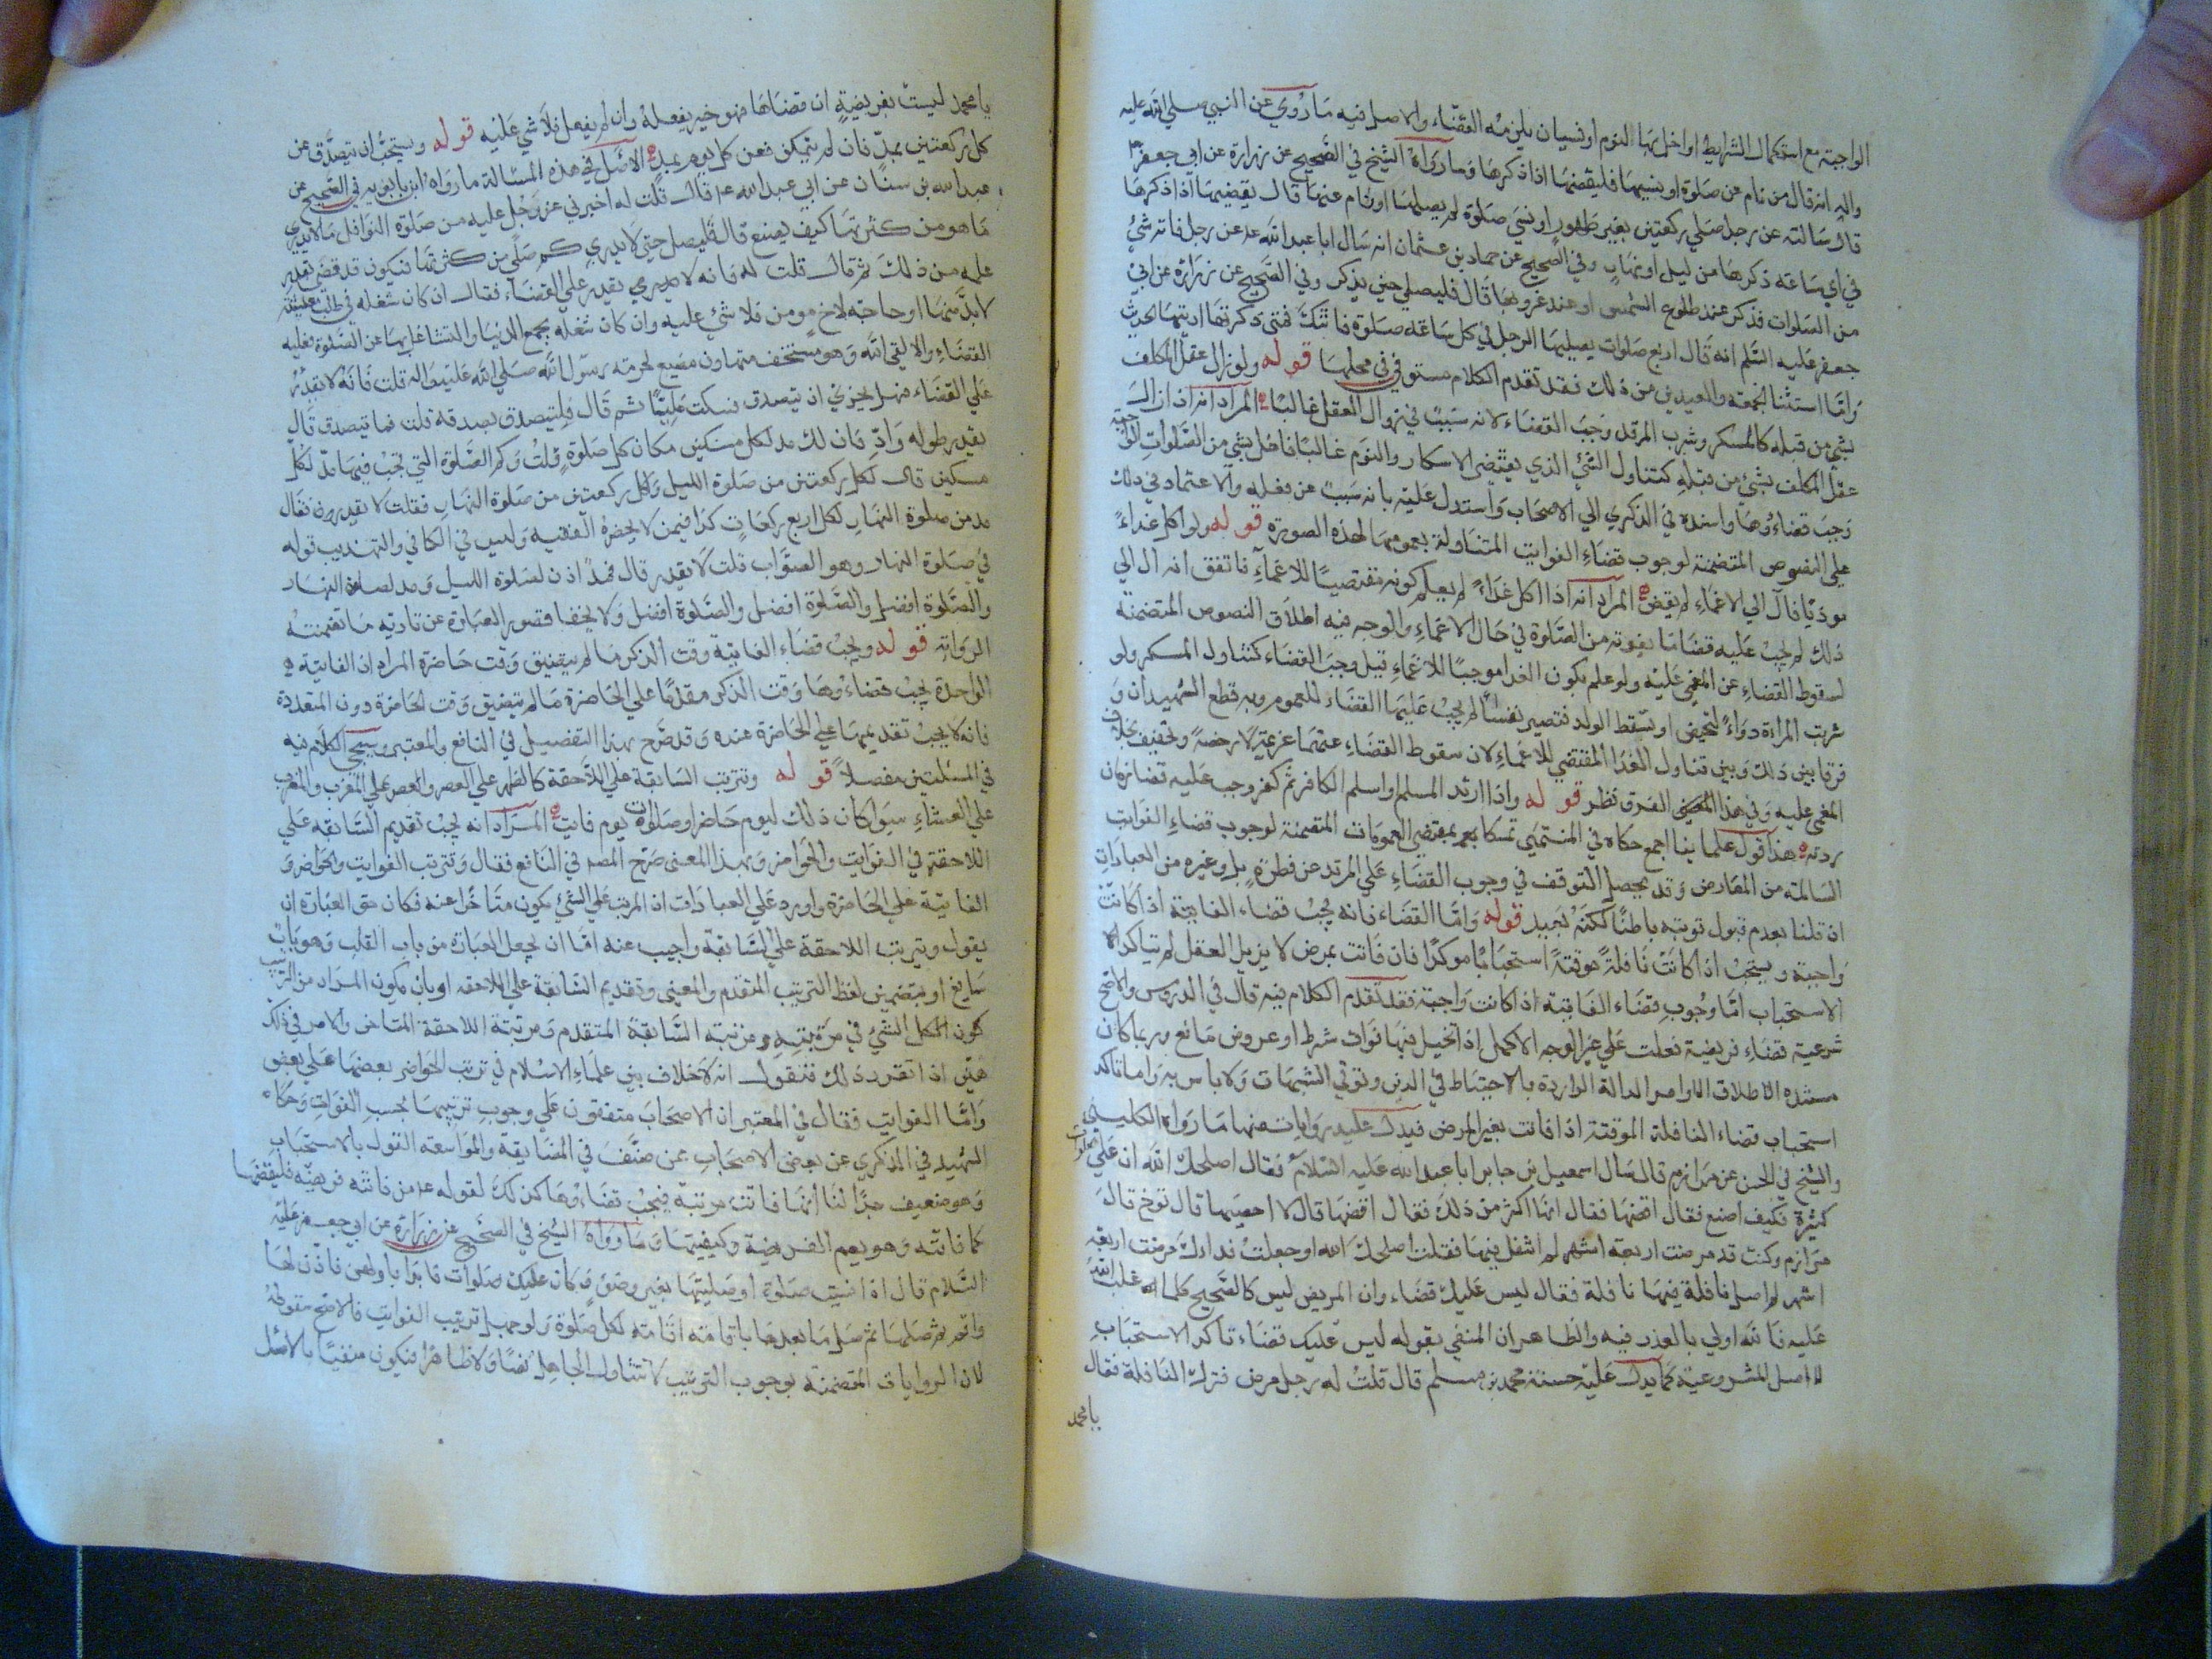 الواجبة مع استكمال الشرايط او اخل بها النوم او نسيان يلزمه القضاء والاصل فيه ما روي عن النبي صلي الله عليه
واله انه قال من نام عن صلوة او نسيها فليقضها اذا ذكرها وما رواه الشيخ في الصحيح عن زرارة عن ابي جعفر
قال سالته عن رجل صلي ركعتين بغير طهور او نسي صلوة لم يصلها او نام عنها قال يقضيها اذا ذكرها
في اي ساعة ذكرها من ليل او نهار وفي الصحيح عن حماد بن عثمان انه سال ابا عبد الله عن رجل فاته شئ
من الصلوات فذكر عند طلوع الشمس او عند غروبها قال فليصلي حين يذكر وفي الصحيح عن زرارة عن ابي
جعفر عليه السلم انه قال اربع صلوات يصليها الرجل في كل ساعة صلوة فاتتك فمتي ذكرتها اديتها الحديث
واما استثنا الجمعة والعيدين من ذلك فقد تقدم الكلام مستوفي في محلها قوله ولو زال عقل المكلف
بشئ من قبله كالمسكر وشرب المرقد وجب القضاء لانه سبب في زوال العقل غالبا المراد انه اذا زال
عقل المكلف بشئ من قبله كتناول الشئ الذي يقتضي الاسكار والنوم غالبا فاخل بشئ من الصلوات
وجب قضاءوها واسنده في الذكري الي الاصحاب واستدل عليه بانه سبب عن فعله والاعتماد في ذلك
علي النصوص المتضمنة لوجوب قضاء الفوايت المتناولة بعمومها لهذه الصورة قوله ولو اكل غذاء
موذيا فآل الي الاغماء لم يقض المراد انه اذا اكل غذاء لم يعلم كونه مقتضيا للاغماء فاتفق انه ال الي
ذلك لم يجب عليه قضا ما يفوته من الصلوة في حال الاغماء والوجه فيه اطلاق النصوص المتضمنة
لسقوط القضاء عن المغمي عليه ولو علم بكون الغذا موجبا للاغماء قيل وجب القضاء كتناول المسكر ولو
شربت المراة دواء لتحيض او تسقط الولد فتصير نفساء لم يجب عليها القضاء للعموم وبه قطع الشهيدان و
فرقا بين ذلك وبين تناول الغذا المقتضي للاغماء لان سقوط القضاء عنهما عزيمة لا رخصة وتخفيف بخلاف
المغمي عليه وفي هذا الفرق نظر قوله واذا ارتد المسلم او اسلم الكافر ثم كفر وجب عليه قضا زمان
ردته هذا قول علماينا اجمع حكاه في المنتهي تمسكا بمقتضي العمومات المتضمنة لوجوب قضاء الفوايت
السالمة من المعارض وقد يحصل التوقف في وجوب القضاء علي المرتد عن فطرة بل وغيره من العبادات
ان قلنا بعدم قبول توبته باطنا لكنه بعيد قوله واما القضاء فانه يجب قضاء الفايتة اذا كانت
واجبة ويستحب اذا كانت نافلة موقتة استحبابا موكدا فان فاتت بمرض لا يزيل العقل لم يتاكد
الاستحباب اما وجوب قضاء الفايتة اذا كانت واجبة فقد تقدم الكلام فيه قال في الدروس والاصح
شرعية قضاء فريضة فعلت علي غير الوجه الاكمل اذا تخيل فيها فوات شرط او عروض مانع وربما كان
مستنده اطلاق الاوامر الدالة الواردة بالاحتياط في الدين وتوقي الشبهات ولا باس به واما تاكد
استحباب قضاء النافلة الموقتة اذا فاتت بغير المرض فيدل عليه روايات منها ما رواه الكليني
والشيخ في الحسن عن مرازم قال سال اسمعيل بن جابر ابا عبد الله عليه السلام فقال اصلحك الله ان علي نوافل
كثيرة فكيف اصنع فقال اقضها فقال انها اكثر من ذلك فقال اقضها قال لا احصيها قال توخ قال
مرازم وكنت قد مرضت اربعة اشهر لم اتنفل فيها فقلت اصلحك الله او جعلت فداك مرضت اربعة
اشهر لم اصل نافلة فيها نافلة فقال ليس عليك قضاء وان المريض ليس كالصحيح كلما غلب الله
عليه فالله اولي بالعذر فيه والظاهر ان المنفي بقوله ليس عليك قضاء تاكد الاستحباب
لا اصل المشروعية كما يدل عليه حسنة محمد بن مسلم قال قلت له رجل مرض فترك النافلة فقال
يا محمد
يا محمد ليست بفريضة ان قضاها فهو خير يفعله وان لم يفعل فلا شي عليه قوله ويستحب ان يتصدق عن
كل ركعتين بمد فان لم يتمكن فعن كل يوم بمد الاصل في هذه المسالة ما رواه ابن بابويه في الصحيح عن
عبد الله بن سنان عن ابي عبد الله قال قلت له اخبرني عن رجل عليه من صلوة النوافل ما لا يدري
ما هو من كثرتها كيف يصنع قال فليصل حتي لا يدري كم صلي من كثرتها فيكون قد قضي بقدر
علمه من ذلك ثم قال قلت له فانه لا يدري يقدر علي القضاء فقال ان كان شغله في طلب معيشة
لا بد منها او حاجة لاخ مومن فلا شئ عليه وان كان شغله بجمع الدنيا والتشاغل بها عن الصلوة فعليه
القضاء والا لقي الله وهو مستخف متهاون مضيع لحرمة رسول الله صلي الله عليه واله قلت فانه لا يقدر
علي القضاء فهل يجزي ان يتصدق فسكت مليا ثم قال فليتصدق بصدقة قلت فما يتصدق قال
بقدر طوله وادني ذلك مد لكل مسكين مكان كل صلوة قلت وكم الصلوة التي يجب فيها مد لكل
مسكين قال لكل ركعتين من صلوة الليل ولكل ركعتين من صلوة النهار فقلت لا يقدر فقال
مد من صلوة النهار لكل اربع ركعات كذا فيمن لا يحضره الفقيه وليس في الكافي والتهذيب قوله
في صلوة النهار وهو الصواب قلت لا يقدر قال فمد اذن لصلوة الليل ومد لصلوة النهار
والصلوة افضل والصلوة افضل والصلوة افضل ولا يخفا قصور العبارة عن تادية ما تضمنته
الرواية قوله ويجب قضاء الفايتة وقت الذكر ما لم يتضيق وقت حاضرة المراد ان الفايتة
الواحدة يجب قضاءوها وقت الذكر مقدما علي الحاضرة ما لم يتضيق وقت الحاضرة دون المتعددة
فانه لا يجب تقديمها علي الحاضرة عنده وقد صرح بهذا التفصيل في النافع والمعتبر وسيجي الكلام فيه
في المسئلتين مفصلا قوله وتترتب السابقة علي اللاحقة كالظهر علي العصر والعصر علي المغرب والمغرب
علي العشاء سوا كان ذلك ليوم حاضر او صلوات يوم فايت المراد انه يجب تقديم السابقة علي
اللاحقة في الفوايت والحواضر وبهذا المعني صرح المصـ في النافع فقال وتترتب الفوايت والحواضر و
الفايتة علي الحاضرة واورد علي العبادات ان المرتب علي الشئ يكون متاخرا عنه فكان حق العبارة ان
يقول وتترتب اللاحقة علي السابقة واجيب عنه اما ان يجعل العبارة من باب القلب وهو باب
سايغ او بتضمين لفظ الترتيب المتقدم والمعني وتقديم السابقة علي اللاحقة او بان يكون المراد من الترتيب
كون كل الشئ في مرتبته ومرتبة السابقة المتقدم ومرتبة اللاحقة المتاخر والامر في ذلك
هين اذا تقرر ذلك فنقول انه لا خلاف بين علماء الاسلام في ترتيب الحواضر بعضها علي بعض
واما الفوايت فقال في المعتبر ان الاصحاب متفقون علي وجوب ترتيبها بحسب الفوات وحكاه
الشهيد في الذكري عن بعض الاصحاب ممن صنف في المضايقة والمواسعة القول بالاستحباب
وهو ضعيف جدا لنا انها فاتت مرتبة فيجب قضاءوها كذلك لقوله من فاتته فريضة فليقضها
كما فاتته وهو يعم الفريضة وكيفيتها وما رواه الشيخ في الصحيح عن زرارة عن ابي جعفر عليه
السلام قال اذا نسيت صلوة او صليتها بغير وضوء وكان عليك صلوات فابدا باولهن فاذن لها
واقم ثم صلها ثم صل ما بعدها باقامة اقامة لكل صلوة ولو جهل ترتيب الفوايت فالاصح سقوطه
لان الروايات المتضمنة لوجوب الترتيب لا تتناول الجاهل نصا ولا ظاهرا فيكون منفيا بالاصل